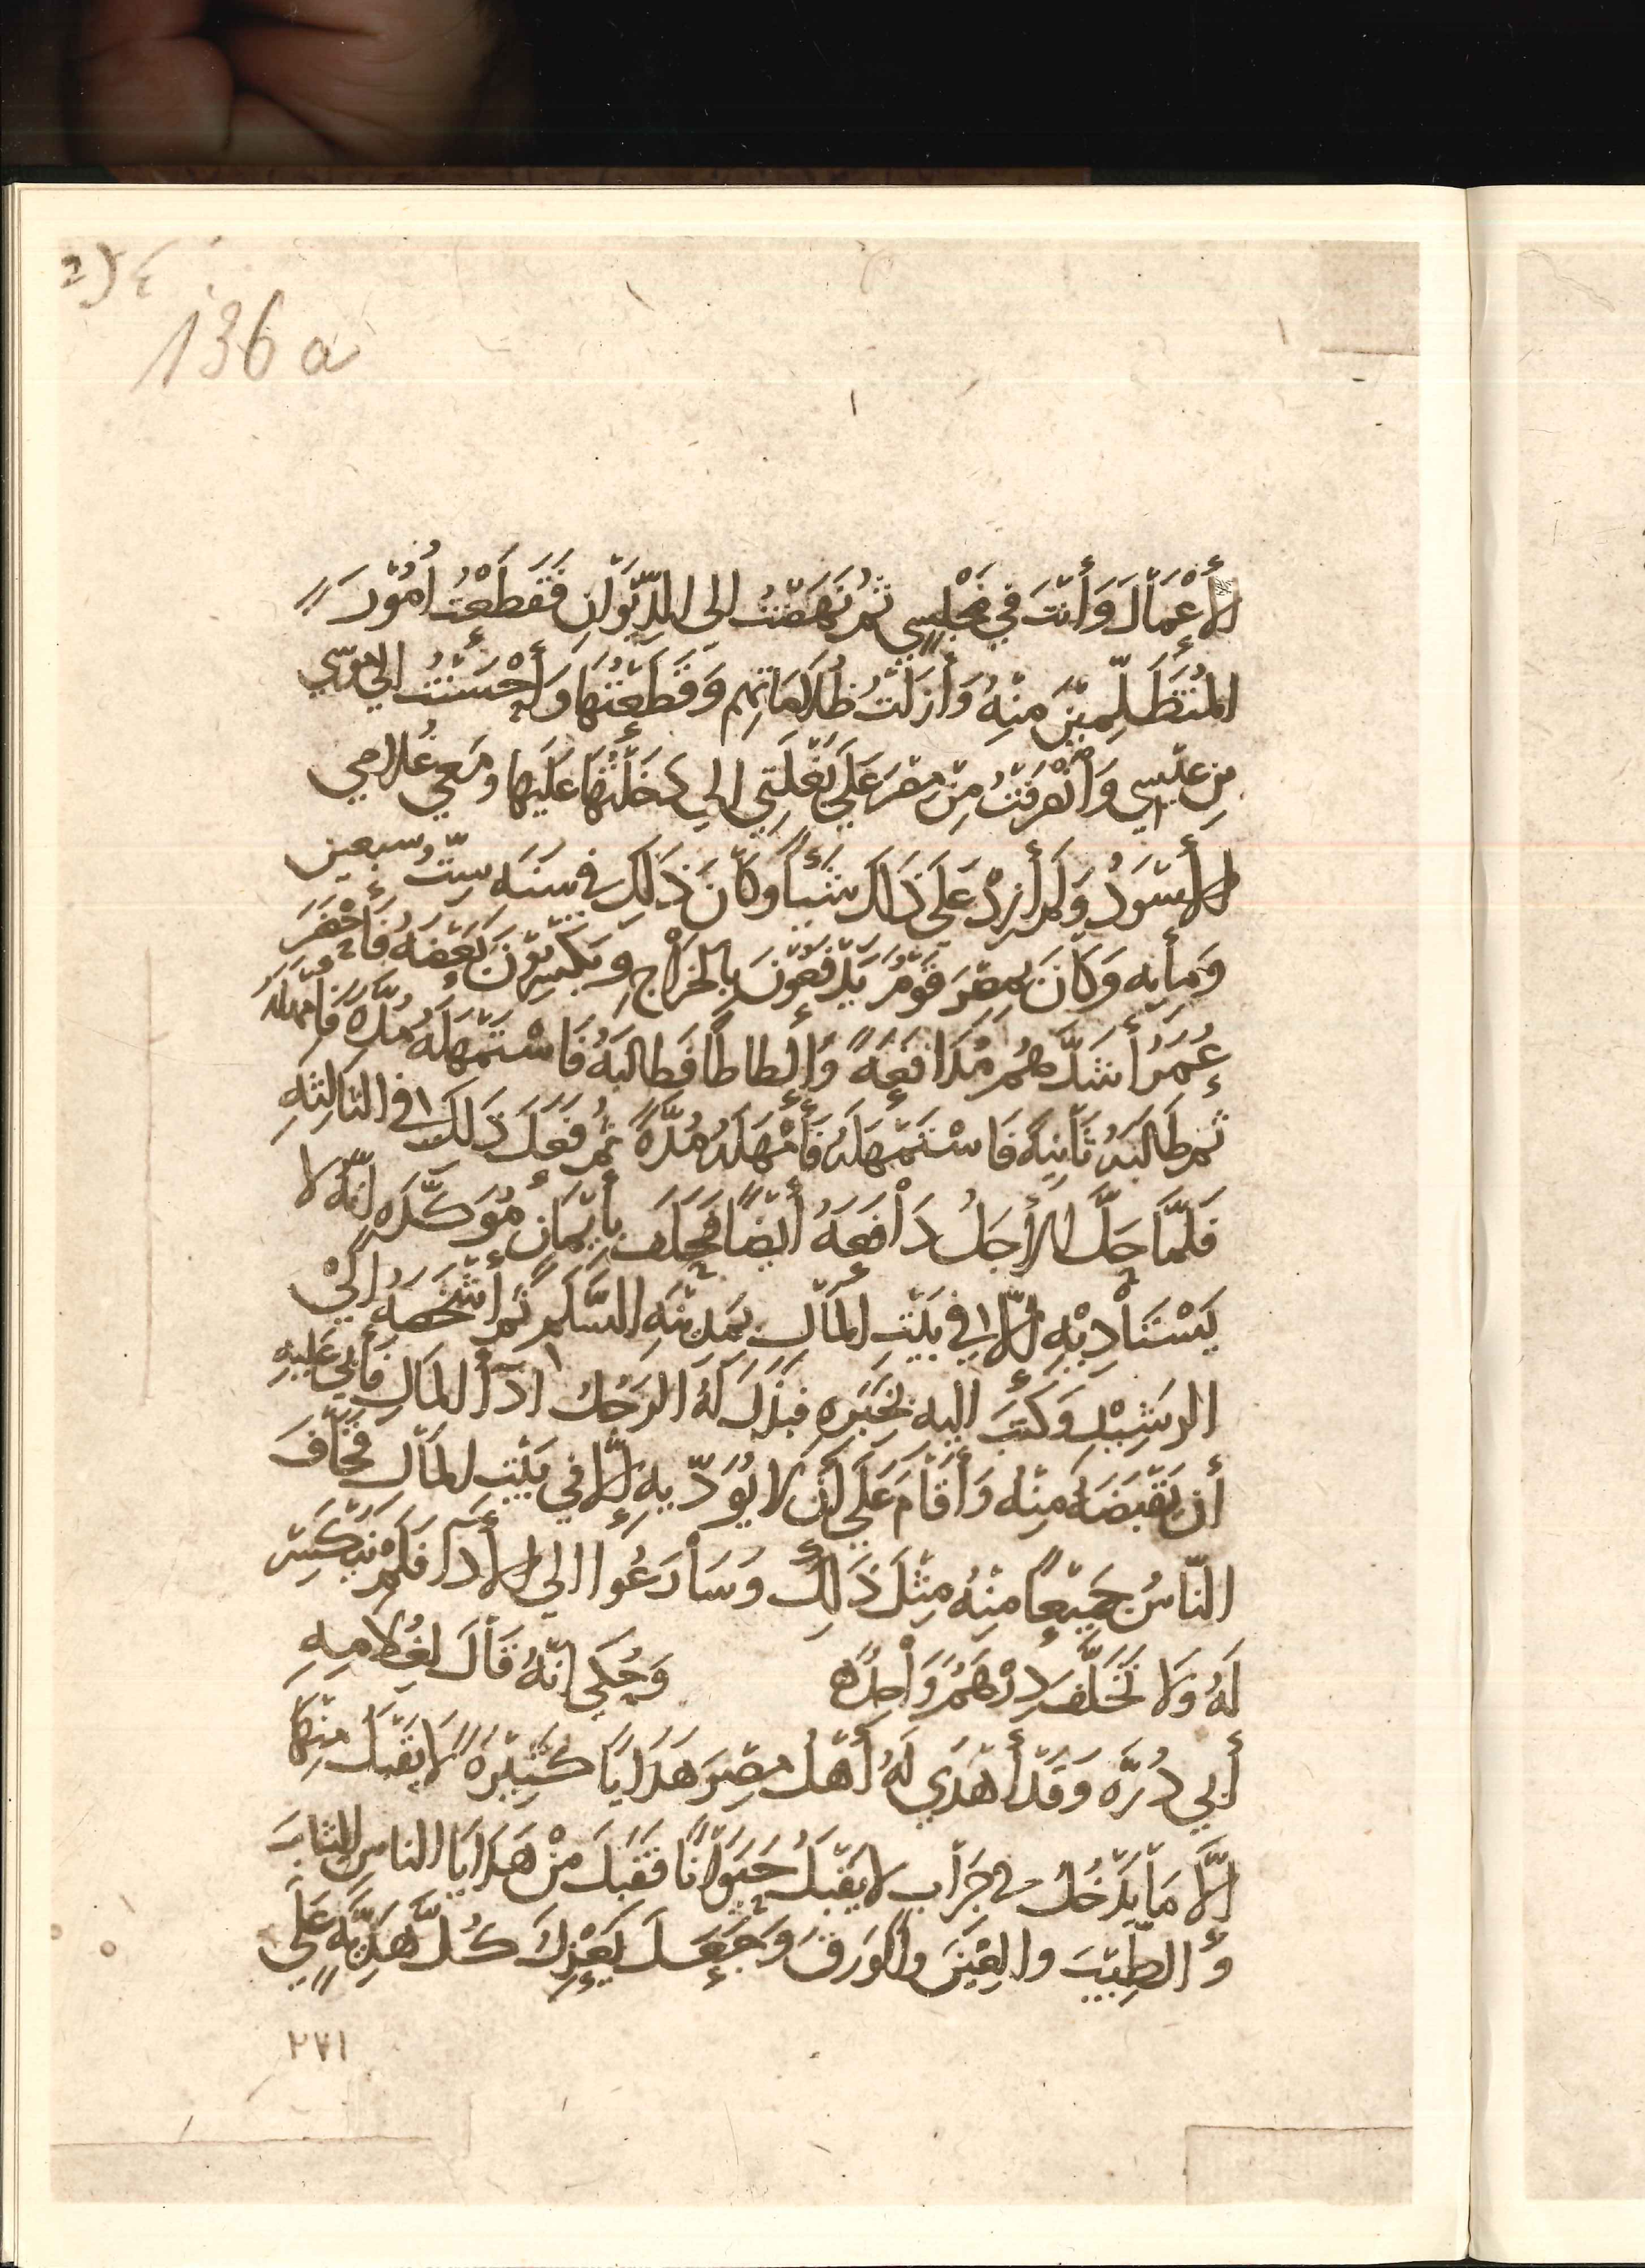 136 a
لأَعْمَالَ وَأَنْتَ فِي مَجْلِسِي ثُمَّ نَهَضْتُ إلى الدِّيْوَانِ فَقَطَعْتُ أُمُوْرَ
المُتَظَلِّمِيْنَ مِنْهُ وَأَزَلْتُ ظُلَامَاتِهِم وَقَطَعْتُهَا وَأَحْسَنْتُ إلى مُوسَي
بن عيْسِي وَانْصَرَفْتُ مِنْ مِصْرَ عَلَى بَغْلَتِي الَّتِي دَخَلْتُهَا عَلَيْهَا وَمَعِي غُلَامِي
الأَسْوَدُ وَلَمْ أَزِدْ عَلَى ذَلَكَ شَيْئاً وَكَانَ ذَلِكَ في سَنَه سِتّ وسبعين
وَمِأَيه وَكَانَ بِمِصْرَ قَوْمٌ يَدْفَعُوْنَ بِالخَرَاْجِ وَيَكْسِرُوْنَ بَعْضَهُ فَأَحْضَرَ
عُمَرُ أَشَدَّهُمْ مُدَافَعَةً وَإِلْطَاطاً فَطَالَبَهُ فَاسْتَمْهَلَهُ مُدَّهً فَأَمْهَلَهُ
ثم طَالَبَهُ ثَانِيَةً فَاسْتَمْهَلَهُ فَأَمْهَلَهُ مُدَّهً ثُمَّ فَعَلَ ذَلِكَ في الثَالِثَهِ
فَلَمَّا حَلَّ الأَجَلُ دَافَعَهُ أَيْضاً فَحَلَفَ بِأَيْمَانٍ مُؤَكَّدَهٍ إنَّهُ لا
يَسْتَأْدِيْهِ إلاَّ في بَيْتِ المَالِ بِمَدِيْنَهِ السَّلَمِ ثُمَّ أَشْخَصَهُ إلَيْ
الرشِيْدِ وَكَتَبَ اليه بِخَبَرِهِ فَبَذَلَ لَهُ الرَجُلُ ادَآأَ المَالِ فَأَبَى عَلَيْهِ
أن يَقْبَضَهُ مِنْه وَأَقَامَ عَلَى أَنْ لا يُؤَدِّيهِ إلَّا في بَيْتِ المَالِ فَخَافَ
النّاسُ جَمِيْعاً مِنْهُ مِثْلَ ذَلِكَ وَسَارَعُوا الي الأَدَآ فَلَمْ يَنْكَسِرْ
لَهُ وَلا تَخَلَّفَ دِرْهَمٌ وَاحِدٌه وَحُكِيَ انَّهُ قَالَ لِغُلامِهِ
أَبي دُرَّه وَقَدْ أَهْدَي لَهُ أَهْلُ مِصْرَ هَدَايَا كَثِيْرَهً لَا يَقْبَلْ مِنْهَا
إلَّا مَا يَدْخُلُ في جِرَابٍ لا يَقْبَلُ حَيَوَاناً فَقَبَلَ مِنْ هَدَايَا الناسِ الثيابَ
وَالطِّيْبَ والعَيْنَ وَالوَرِقَ وَجَعَلَ يَعْزِلُ كُلَّ هَدِيَّهٍ عَلَى
٢٧١